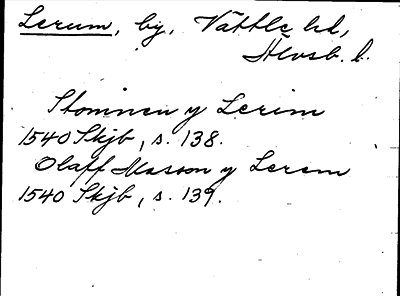 Lerum, by, Vättle hd,
Älvsb. l.
Stomnen y Lerim
1540 Skjb, s. 138.
Olaff Masson y Lerem
1540 Skjb, s. 139.